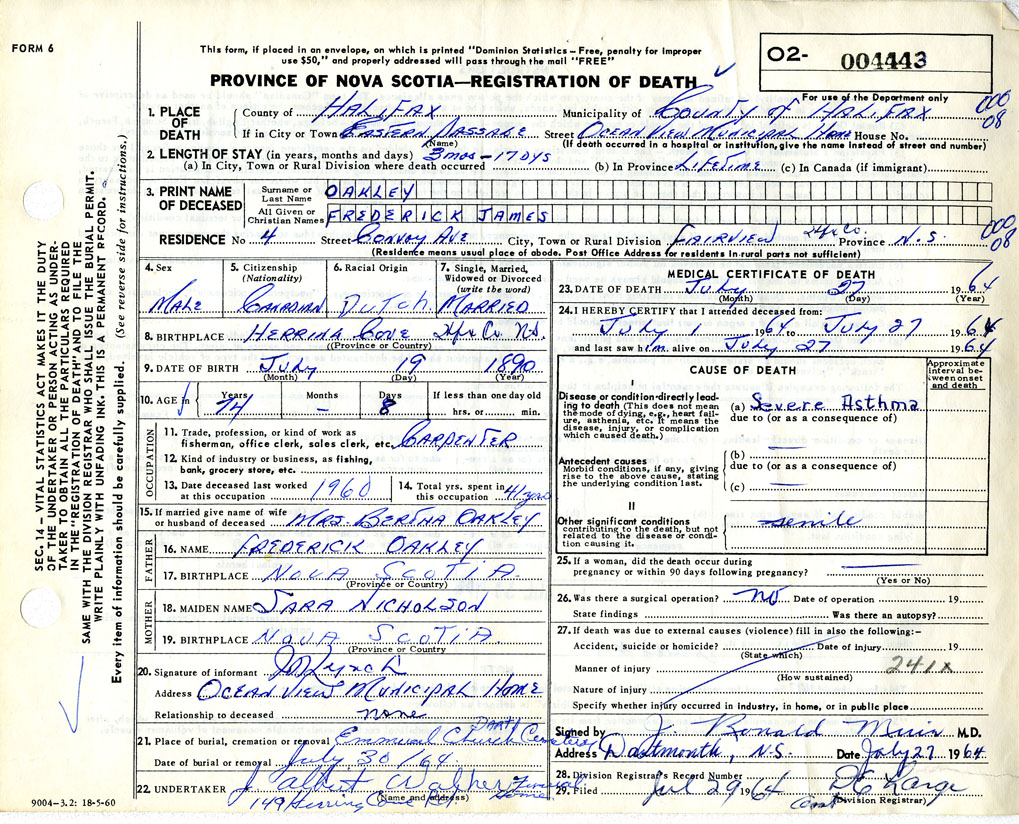 FORM 6
This form, if placed in an envelope, on which is printed "Dominion Statistics – Free, penalty for improper
use $50," and properly addressed will pass through the mail "FREE"
PROVINCE OF NOVA SCOTIA—REGISTRATION OF DEATH
O2- 004443
For use of the Department only
000
08
1. PLACE OF DEATH
County of HALIFAX Municipality of COUNTY OF HALIFAX
If in City or Town EASTERN PASSAGE Street OCEAN VIEW MUNICIPAL HOME House No.
(Name) (If death occurred in a hospital or institution, give the name instead of street and number)
2. LENGTH OF STAY (in years, months and days) 3 mos – 17 DYS
(a) In City, Town or Rural Division where death occurred (b) In Province LIFETIME (c) In Canada (if immigrant)
3. PRINT NAME OF DECEASED
Surname or Last Name OAKLEY
All Given or Christian Names FREDERICK JAMES
RESIDENCE No 4 Street CONVOY AVE City, Town or Rural Division FAIRVIEW Hfx Co. Province N.S.
000
08
(Residence means usual place of abode. Post Office Address for residents in rural parts not sufficient)
4. Sex MALE
5. Citizenship (Nationality) CANADIAN
6. Racial Origin Dutch
7. Single, Married, Widowed or Divorced (write the word) MARRIED
8. BIRTHPLACE HERRING COVE Hfx Co NS.
(Province or Country)
9. DATE OF BIRTH JULY 19 1890
(Month) (Day) (Year)
10. AGE Years 74 Months – Days 8 If less than one day old hrs. or min.
OCCUPATION
11. Trade, profession, or kind of work as fisherman, office clerk, sales clerk, etc. CARPENTER
12. Kind of industry or business, as fishing, bank, grocery store, etc.
13. Date deceased last worked at this occupation 1960
14. Total yrs. spent in this occupation 41 yrs
15. If married give name of wife or husband of deceased MRS. BERTHA OAKLEY
FATHER
16. NAME FREDERICK OAKLEY
17. BIRTHPLACE NOVA SCOTIA
(Province or Country)
MOTHER
18. MAIDEN NAME SARA NICHOLSON
19. BIRTHPLACE NOVA SCOTIA
(Province or Country
20. Signature of informant Lynch
Address OCEAN VIEW MUNICIPAL HOME
Relationship to deceased none
21. Place of burial, cremation or removal Emmanuel Church Cemetery
Date of burial or removal July 30/64
22. UNDERTAKER J Albert Walker Funeral Home
149 Herring Cove Rd
(Name and address)
9004–3.2: 18-5-60
MEDICAL CERTIFICATE OF DEATH
23. DATE OF DEATH July 27 1964
(Month) (Day) (Year)
24. I HEREBY CERTIFY that I attended deceased from:
July 1 1964 to July 27 1964
and last saw him alive on July 27 1964
CAUSE OF DEATH
Approximate interval between onset and death
I
Disease or condition directly leading to death (This does not mean the mode of dying, e.g., heart failure, asthenia, etc. It means the disease, injury, or complication which caused death.)
(a) Severe Asthma
due to (or as a consequence of)
Antecedent causes
Morbid conditions, if any, giving rise to the above cause, stating the underlying condition last.
(b) —
due to (or as a consequence of)
(c) —
II
Other significant conditions contributing to the death, but not related to the disease or condition causing it.
senile
25. If a woman, did the death occur during pregnancy or within 90 days following pregnancy? —
(Yes or No)
26. Was there a surgical operation? no Date of operation 19
State findings Was there an autopsy?
27. If death was due to external causes (violence) fill in also the following:–
Accident, suicide or homicide? Date of injury 19
(State which)
241X
Manner of injury
(How sustained)
Nature of injury
Specify whether injury occurred in industry, in home, or in public place
Signed by J. Ronald Muir M.D.
Address Dartmouth, N.S. Date July 27 1964
28. Division Registrar's Record Number
29. Filed Jul 29 1964
(Division Registrar)
SEC. 14 – VITAL STATISTICS ACT MAKES IT THE DUTY
OF THE UNDERTAKER OR PERSON ACTING AS UNDER-
TAKER TO OBTAIN ALL THE PARTICULARS REQUIRED
IN THE "REGISTRATION OF DEATH" AND TO FILE THE
SAME WITH THE DIVISION REGISTRAR WHO SHALL ISSUE THE BURIAL PERMIT.
WRITE PLAINLY WITH UNFADING INK. THIS IS A PERMANENT RECORD.
Every item of information should be carefully supplied. (See reverse side for instructions.)